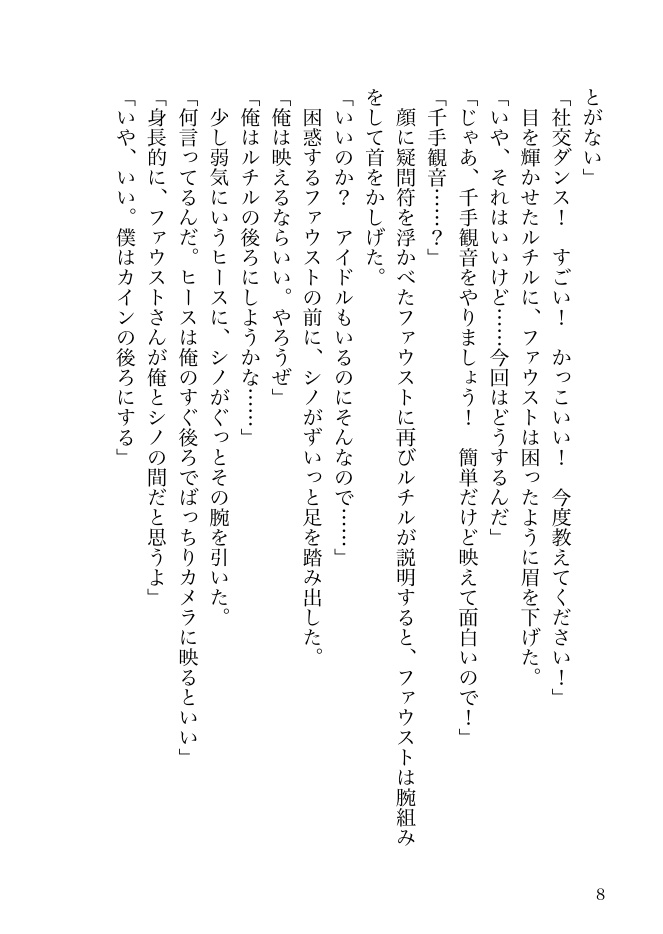 とがない」
「社交ダンス！　すごい！　かっこいい！　今度教えてください！」
　目を輝かせたルチルに、ファウストは困ったように眉を下げた。
「いや、それはいいけど……今回はどうするんだ」
「じゃあ、千手観音をやりましょう！　簡単だけど映えて面白いので！」
「千手観音……？」
　顔に疑問符を浮かべたファウストに再びルチルが説明すると、ファウストは腕組み
をして首をかしげた。
「いいのか？　アイドルもいるのにそんなので……」
　困惑するファウストの前に、シノがずいっと足を踏み出した。
「俺は映えるならいい。やろうぜ」
「俺はルチルの後ろにしようかな……」
　少し弱気にいうヒースに、シノがぐっとその腕を引いた。
「何言ってるんだ。ヒースは俺のすぐ後ろでばっちりカメラに映るといい」
「身長的に、ファウストさんが俺とシノの間だと思うよ」
「いや、いい。僕はカインの後ろにする」
8